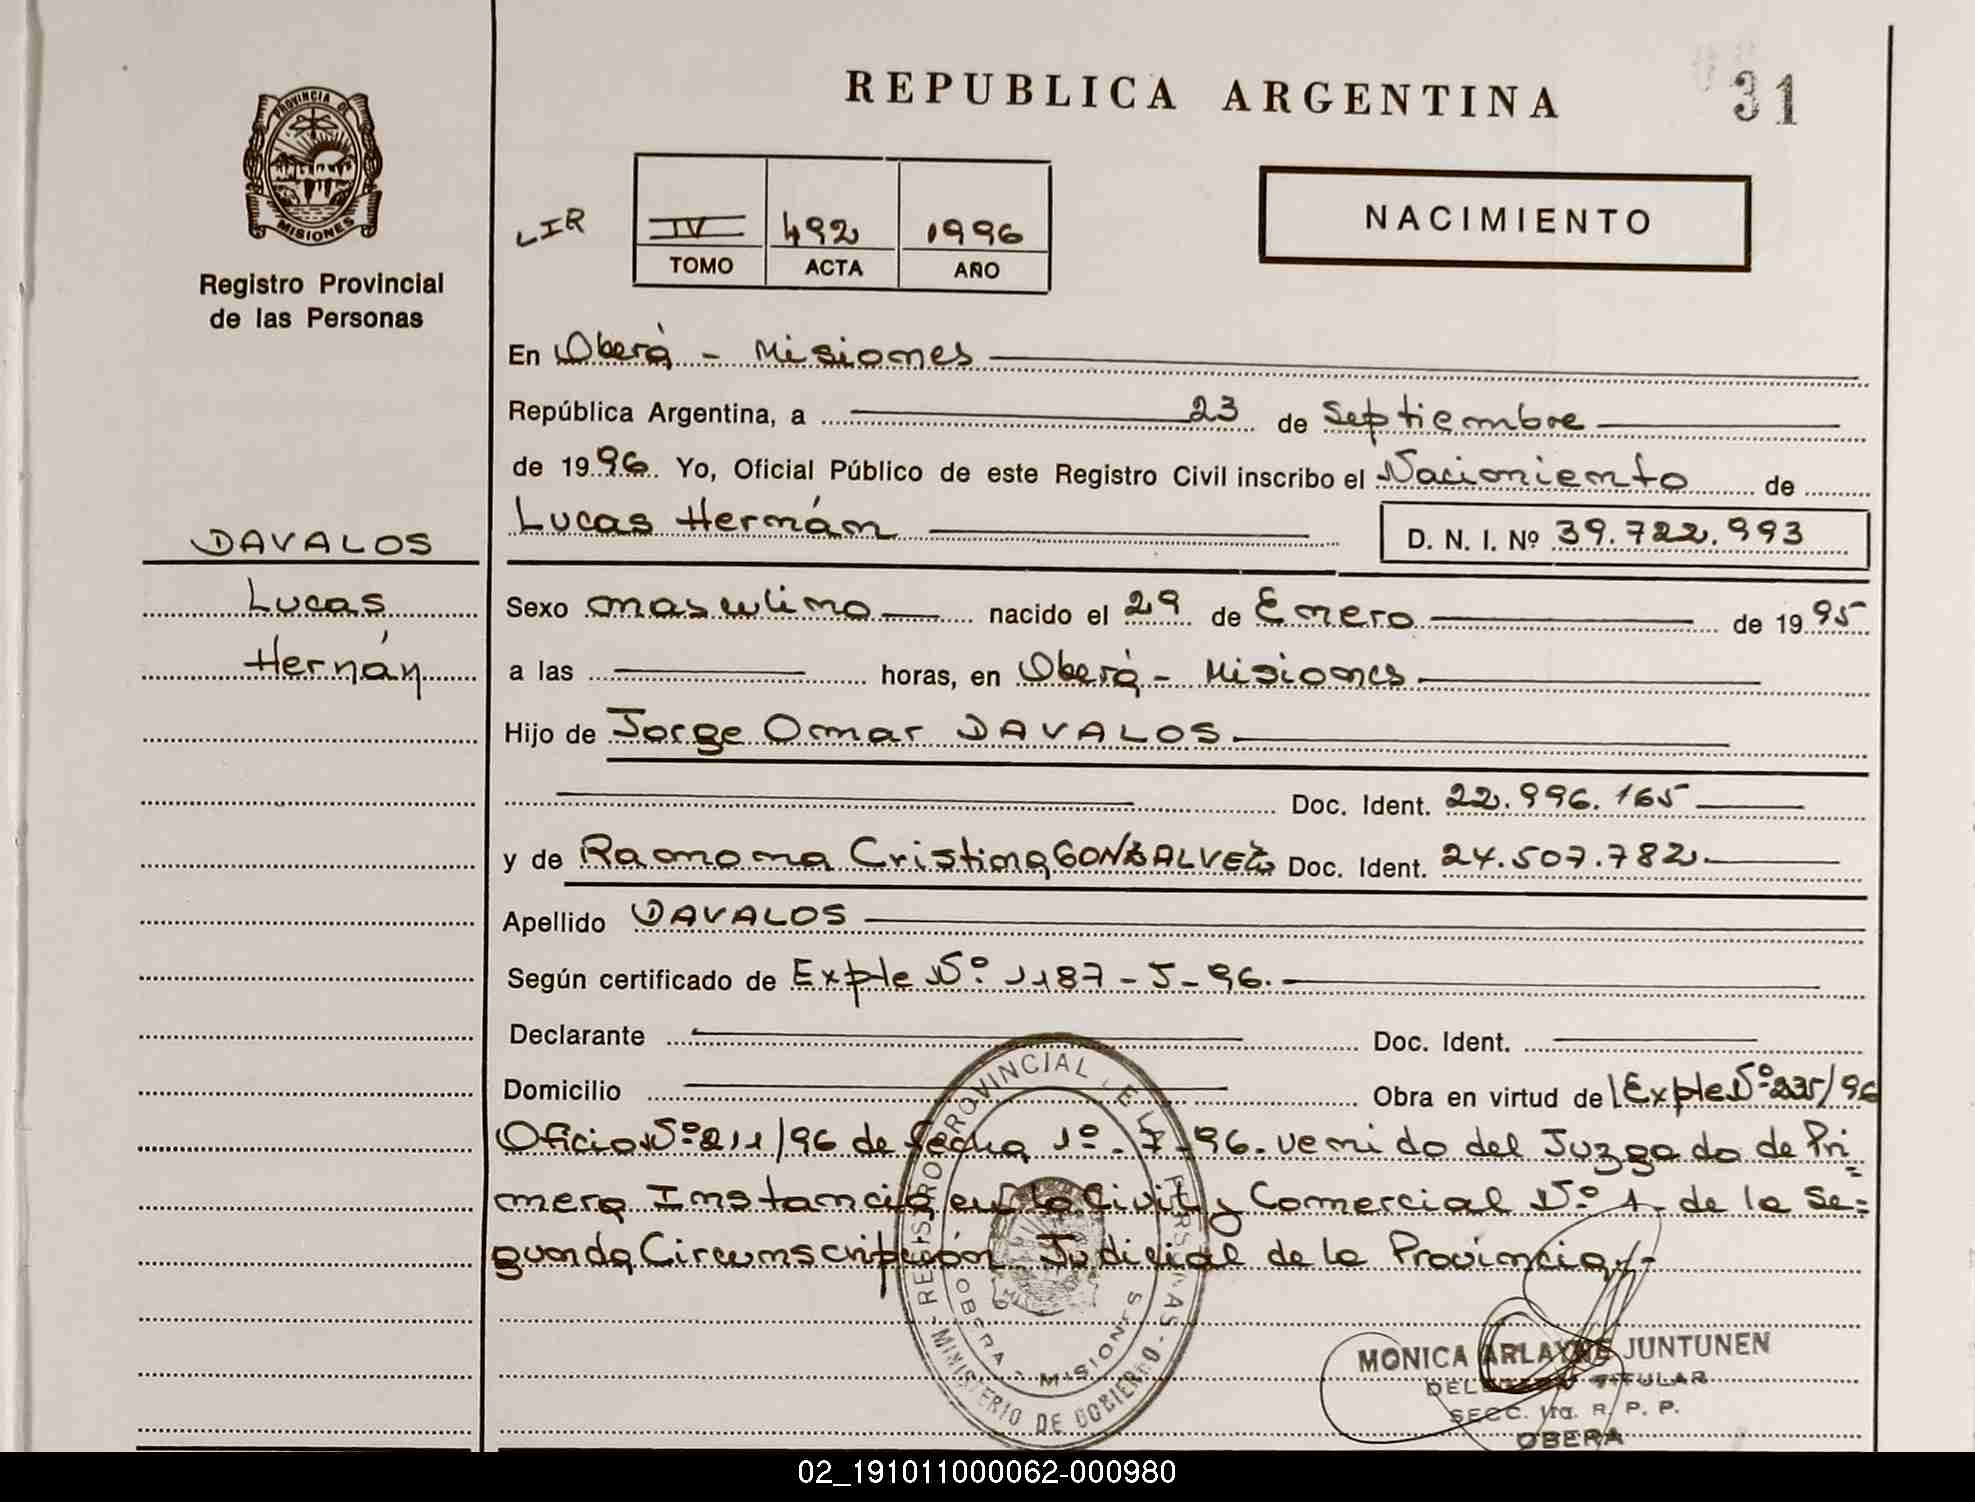 REPUBLICA ARGENTINA
31
PROVINCIA DE
MISIONES
Registro Provincial
de las Personas
LIR
IV 492 1996
TOMO ACTA AÑO
NACIMIENTO
En Oberá - Misiones
República Argentina, a 23 de Septiembre
de 1996. Yo, Oficial Público de este Registro Civil inscribo el Nacimiento de
Lucas Hernán
D. N. I. Nº 39.722.993
DAVALOS
Lucas
Hernán
Sexo masculino nacido el 29 de Enero de 1995
a las horas, en Oberá - Misiones
Hijo de Jorge Omar DAVALOS
Doc. Ident. 22.996.165
y de Ramona Cristina GONSALVEZ Doc. Ident. 24.507.782
Apellido DAVALOS
Según certificado de Expte Nº 1187-J-96.
Declarante Doc. Ident.
Domicilio Obra en virtud de Expte Nº 235/96
Oficio Nº 211/96 de fecha 1º-7-96. venido del Juzgado de Pri
mera Instancia en lo Civil y Comercial Nº 1 de la Se=
gunda Circunscripción Judicial de la Provincia.-
REGISTRO PROVINCIAL DE LAS PERSONAS - MINISTERIO DE GOBIERNO -
OBERA - MISIONES
MONICA ARLAYNE JUNTUNEN
DELEGADA TITULAR
SECC. 1ra. R. P. P.
OBERA
02_191011000062-000980